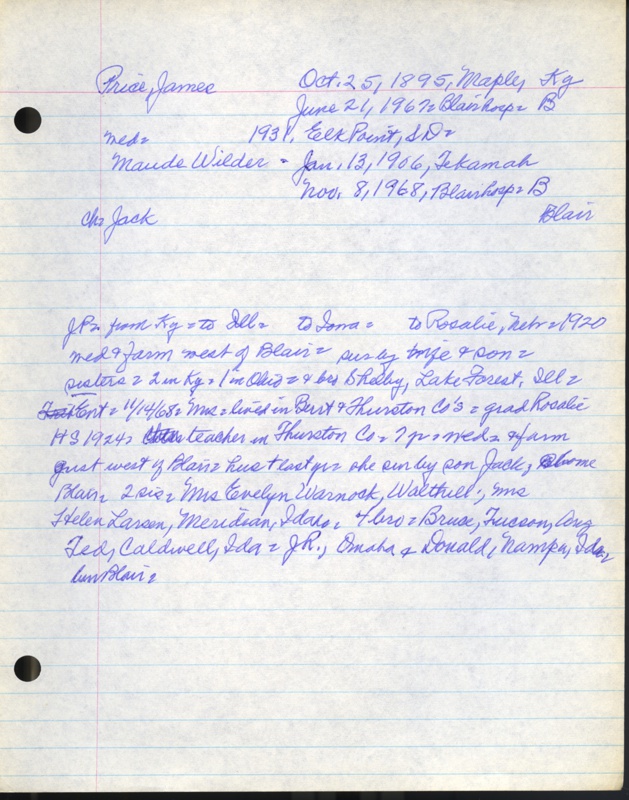 Price, James Oct. 25, 1895, Maple, Ky
June 21, 1967= Blair hosp= B
med= 1931, Elk Point, S.D.=
Maude Wilder = Jan. 13, 1906, Tekamah
Nov. 8, 1968, Blair hosp= B
ch= Jack Blair
JP= from Ky = to Ill= to Iowa= to Rosalie, Nebr=1920
med & farm west of Blair= sur by wife & son=
sisters = 2 in Ky= 1 in Ohio= & bro Shelby, Lake Forest, Ill=
Ent= 11/14/68= Mrs= lived in Burt & Thurston Co's = grad Rosalie
HS 1924= teacher in Thurston Co= 7 yr= med= & farm
just west of Blair= hus + last yr= she sur by son Jack, home
Blair= 2 sis= Mrs Evelyn Warnock, Walthill, Mrs
Helen Larsen, Meridian, Idaho= 4 bro= Bruce, Tucson,
Ted, Caldwell, Ida= J.R., Omaha & Donald, Nampa, Ida=
bur Blair=